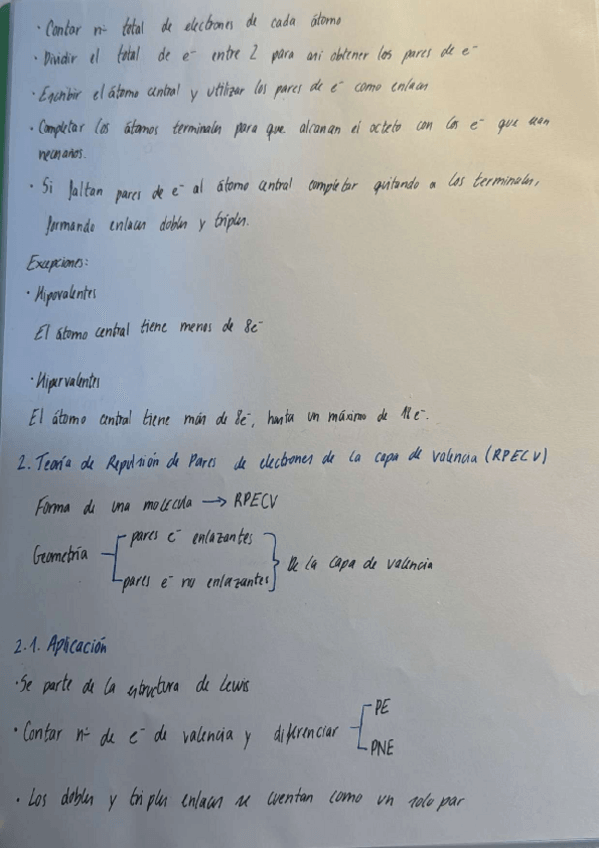 · Contar nº total de electrones de cada átomo
· Dividir el total de e⁻ entre 2 para así obtener los pares de e⁻
· Escribir el átomo central y utilizar los pares de e⁻ como enlaces
· Completar los átomos terminales para que alcancen el octeto con los e⁻ que sean
necesarios.
· Si faltan pares de e⁻ al átomo central completar quitando a los terminales,
formando enlaces dobles y triples.
Excepciones:
· Hipovalentes
El átomo central tiene menos de 8e⁻
· Hipervalentes
El átomo central tiene más de 8e⁻, hasta un máximo de 18e⁻.
2. Teoría de Repulsión de Pares de electrones de la capa de valencia (RPECV)
Forma de una molécula → RPECV
pares e⁻ enlazantes
Geometría
De la capa de valencia
pares e⁻ no enlazantes
2.1. Aplicación
· Se parte de la estructura de Lewis
PE
· Contar nº de e⁻ de valencia y diferenciar
PNE
· Los dobles y triples enlaces se cuentan como un solo par